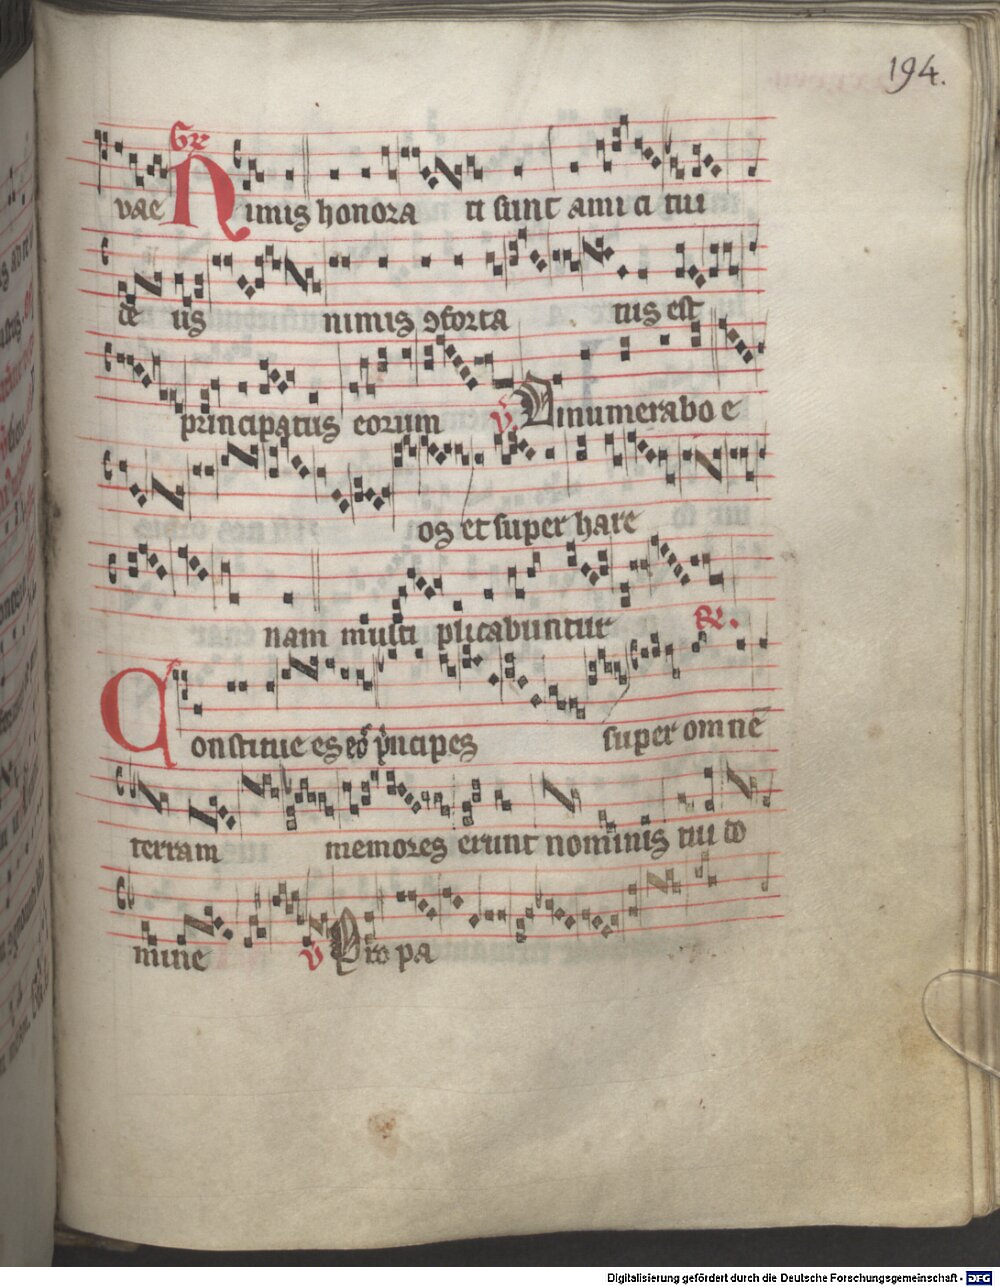 194.
Gr
vae Nimis honora ti sunt ami ci tui
de us nimis ꝯforta tus est
principatus eorum v. Dinumerabo e
os et super hare
nam multi plicabuntur
Gr.
Constitue es eos p̄ncipes super omnē
terram memores erunt nominis tui do
mine v Pro pa
Digitalisierung gefördert durch die Deutsche Forschungsgemeinschaft - DFG